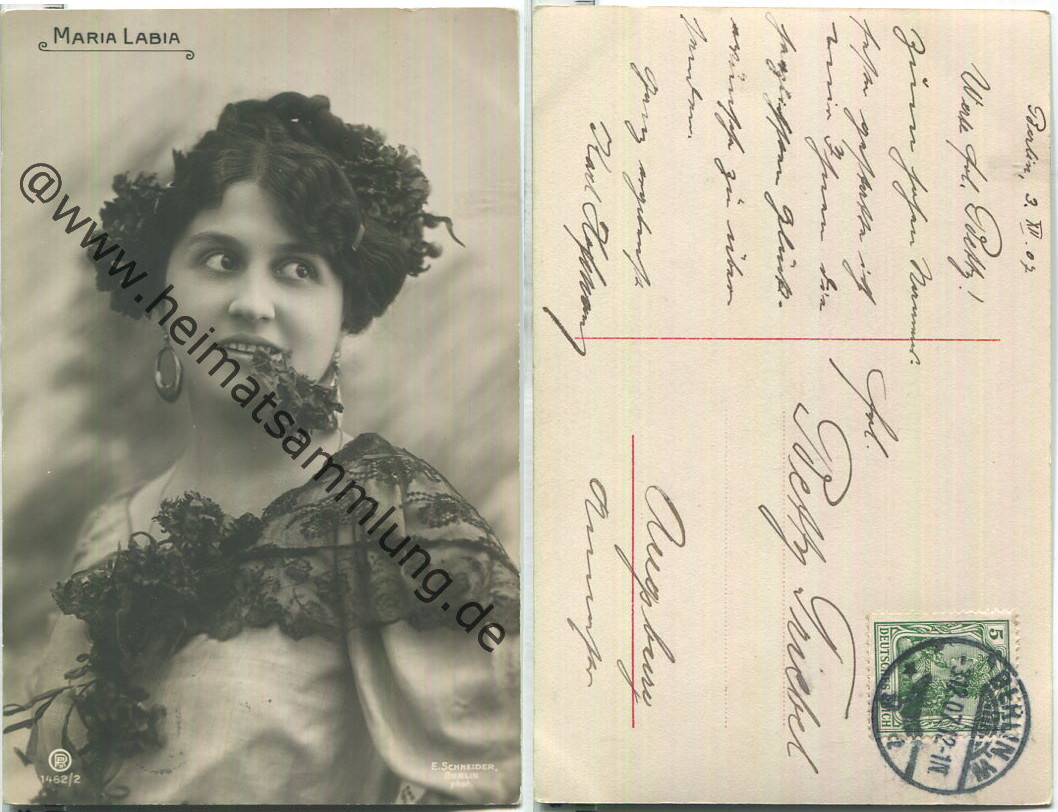 MARIA LABIA
@www.heimatsammlung.de
1462/2
E. SCHNEIDER,
BERLIN
phot.
Berlin, 3. XII. 07
Werte Frl. Betty!
Zum hohen Namens-
feste gestatte ich
mir Ihnen die
herzlichsten Glück-
wünsche zu über-
senden.
Ganz ergebenst
Karl
Frl.
Betty Triebel
Augsburg
5
DEUTSCHES REICH
BERLIN W
-3.12.07.12-1N